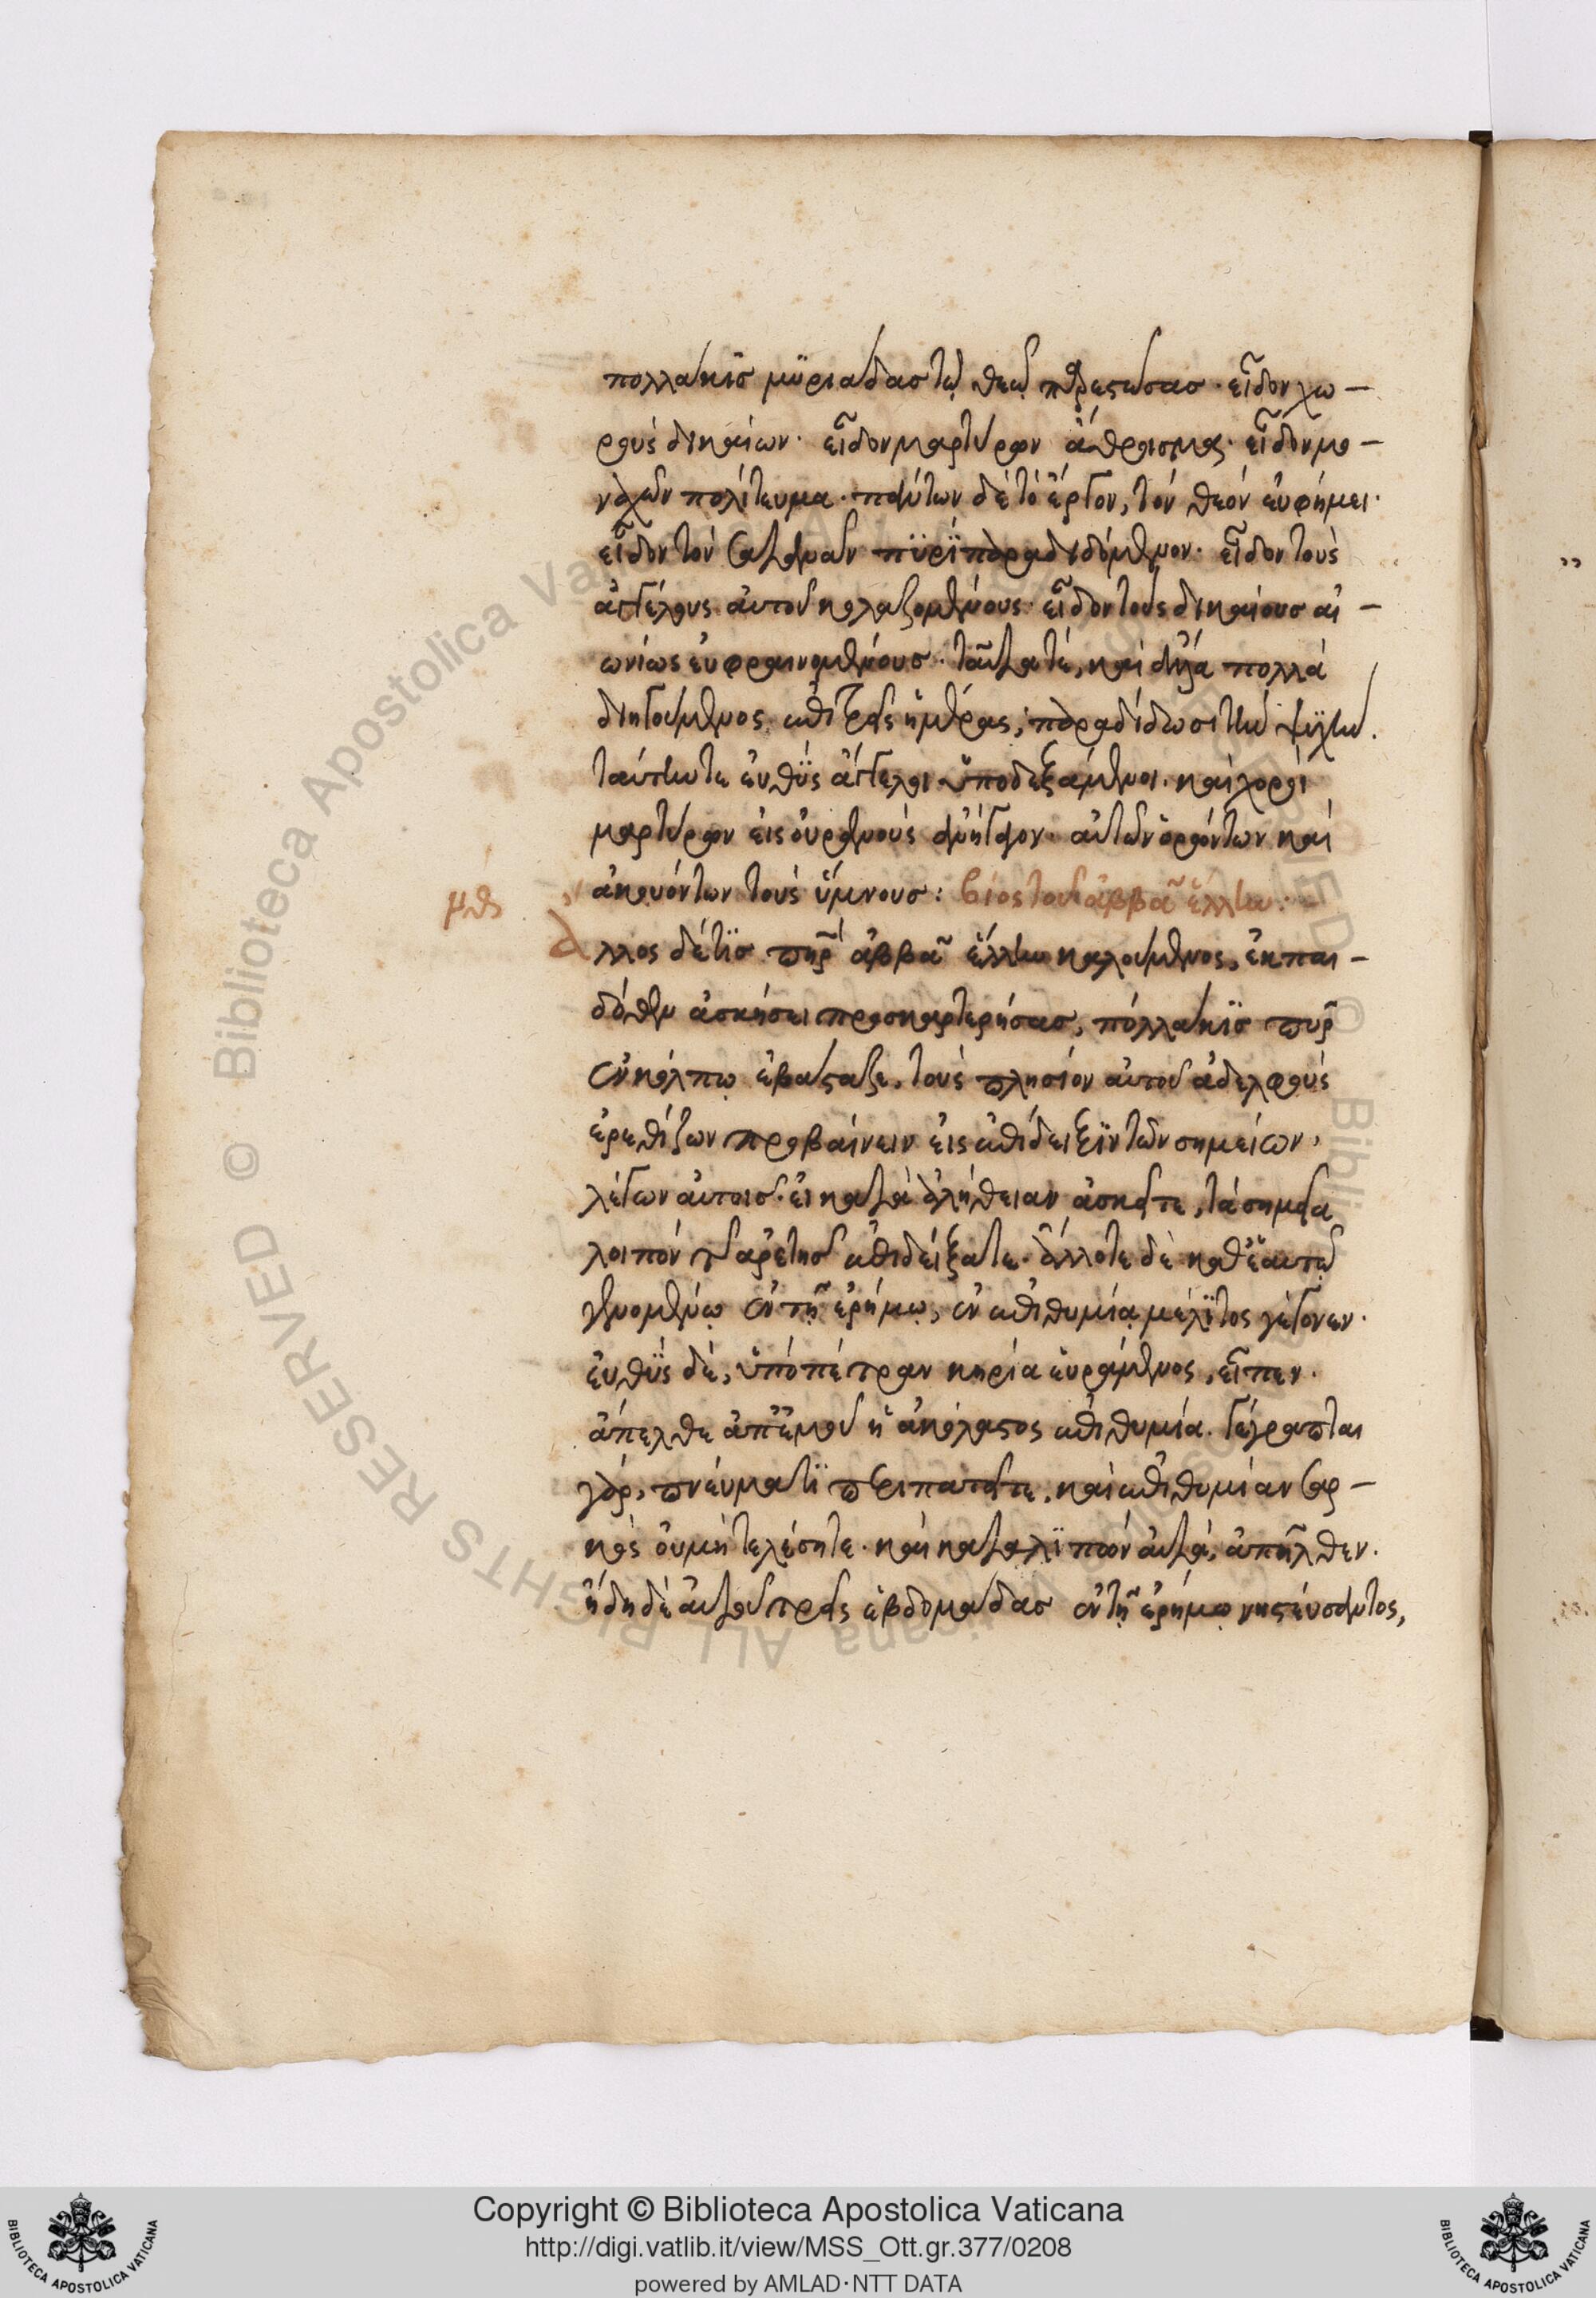 πολλάκις μϋριάδας τῷ θεῷ παρεστώσας · εἶδον χω –
ροὺς δικαίων · εἶδον μαρτύρων ἄθροισμα · εἶδον μο –
ναχῶν πολίτευμα · πάντων δὲ τὸ ἔργον, τὸν θεὸν εὐφήμει ·
εἶδον τὸν σατανᾶν πϋρὶ παραδιδόμενον · εἶδον τοὺς
ἀγγέλους αὐτοῦ κολαζομένους · εἶδον τοὺς δικαίους αἰ –
ωνίως εὐφραινομένους · ταῦτά τέ, καὶ ἄλλα πολλὰ
διηγούμενος ἐπὶ τρεῖς ἡμέρας, παραδίδωσι τὴν ψϋχήν.
ταύτην τε εὐθϋς ἄγγελοι ὑποδεξάμενοι · καὶ χοροὶ
μαρτύρων εἰς οὐρανοὺς ἀνήγαγον · αὐτῶν ὁρώντων καὶ
ἀκουόντων τοὺς ὕμνους : βίος τοῦ ἀββᾶ ἕλλην :
μθ
Ἄλλος δέ τϊς πηρ ἀββᾶ ἕλλην καλούμενος, ἐκ παι –
δόθεν ἀσκήσει προσκαρτερήσας, πολλάκϊς πῦρ
ἐν κόλπῳ ἐβάσταζε, τοὺς πλησίον αὐτοῦ ἀδελφοὺς
ἐρεθίζων προβαίνειν εἰς ἐπίδειξϊν τῶν σημείων,
λέγων αὐτοῖς · εἰ κατὰ ἀλήθειαν ἀσκεῖτε, τὰ σημεῖα
λοιπὸν τῆς ἀρετῆς ἐπιδείξατε · ἄλλοτε δὲ καθ' ἑαυτῷ
γενομένῳ ἐν τῇ ἐρήμῳ, ἐν ἐπιθυμίᾳ μέλϊτος γέγονεν ·
εὐθϋς δέ, ὑπὸ πέτραν κηρία εὑράμενος, εἶπεν ·
ἄπελθε ἀπ' ἐμοῦ ἡ ἀκόλαστος ἐπιθυμία · γέγραπται
γάρ, πνεύματϊ περιπατεῖτε, καὶ ἐπιθυμίαν σαρ –
κὸς οὐ μὴ τελέσητε · καὶ καταλϊπὼν αὐτὰ, ἀπῆλθεν ·
ἤδη δὲ αὐτοῦ τρεῖς ἑβδομάδας ἐν τῇ ἐρήμῳ νηστεύσαντος,
Copyright © Biblioteca Apostolica Vaticana
http://digi.vatlib.it/view/MSS_Ott.gr.377/0208
powered by AMLAD·NTT DATA